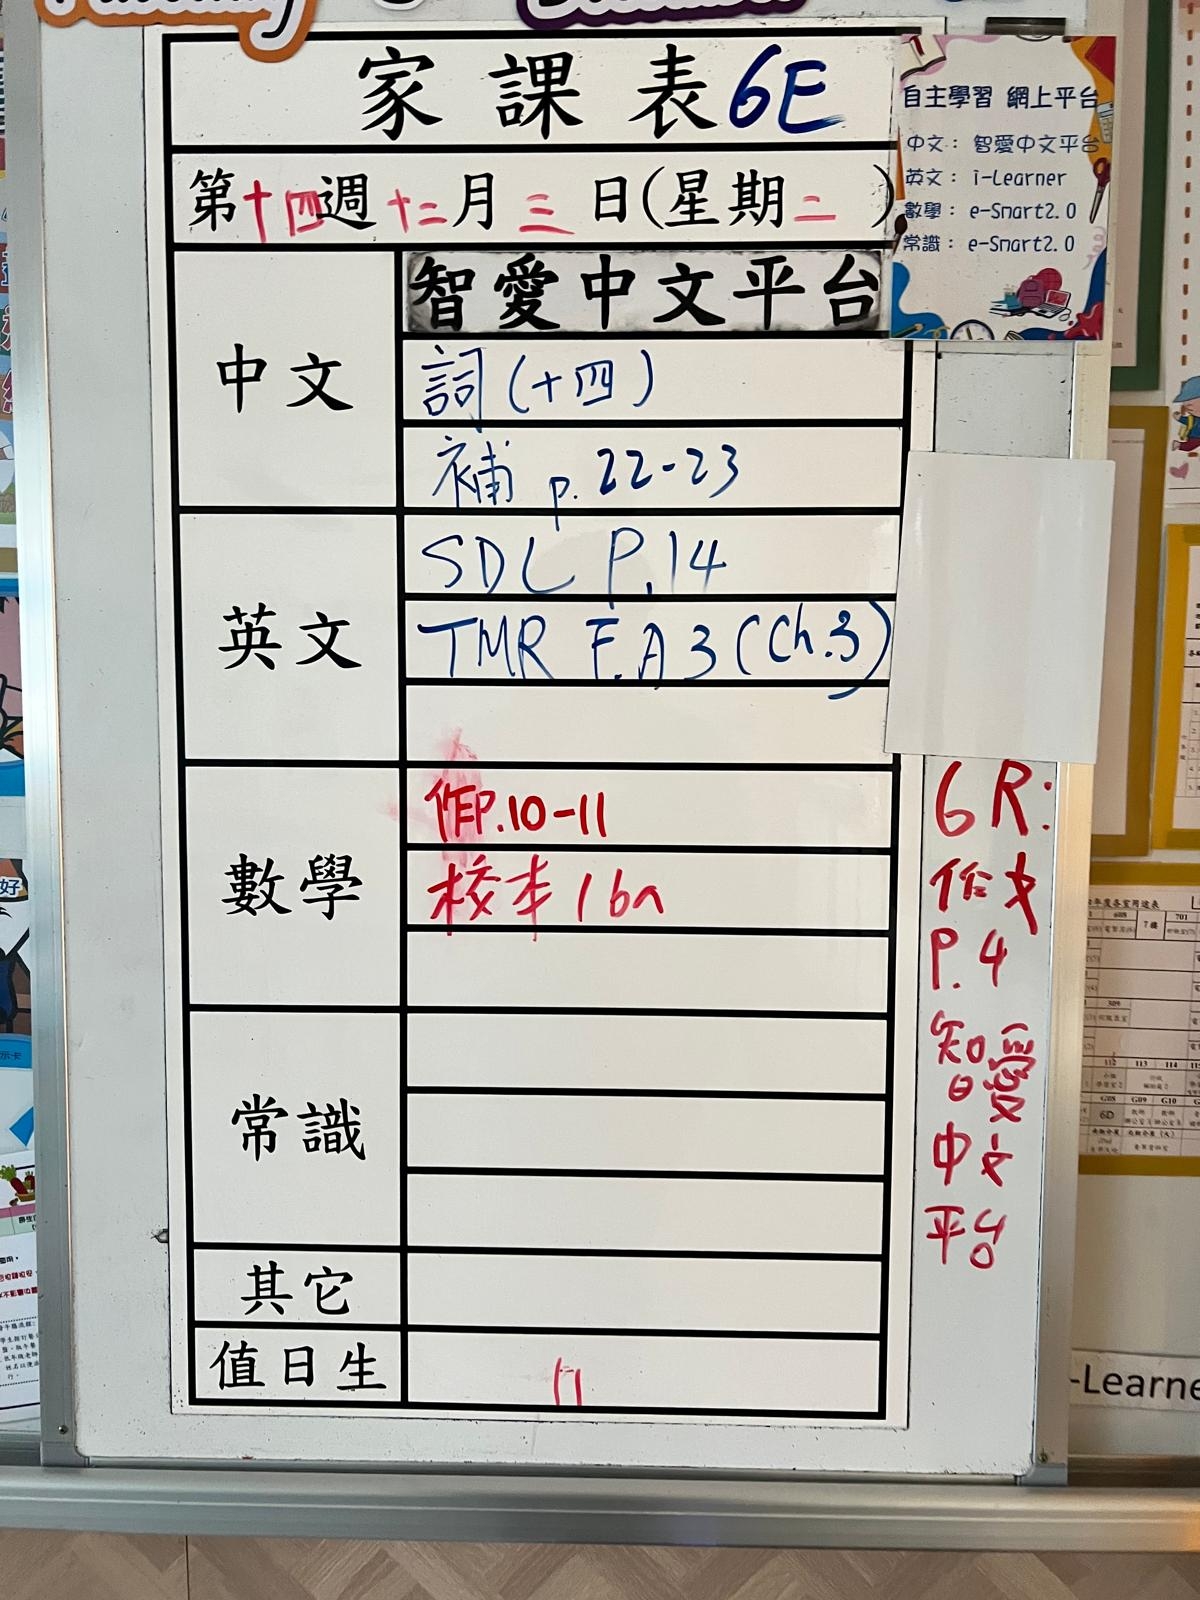 家課表6E
第十四週十二月三日(星期二)
中文
智愛中文平台
詞(十四)
補 p.22-23
英文
SDL P.14
TMR F.A3(Ch.3)
數學
作P.10-11
校本16a
常識
其它
值日生
11
自主學習 網上平台
中文: 智愛中文平台
英文: i-Learner
數學: e-Smart2.0
常識: e-Smart2.0
6R:
作文
P.4
智愛
中文
平台
-Learne